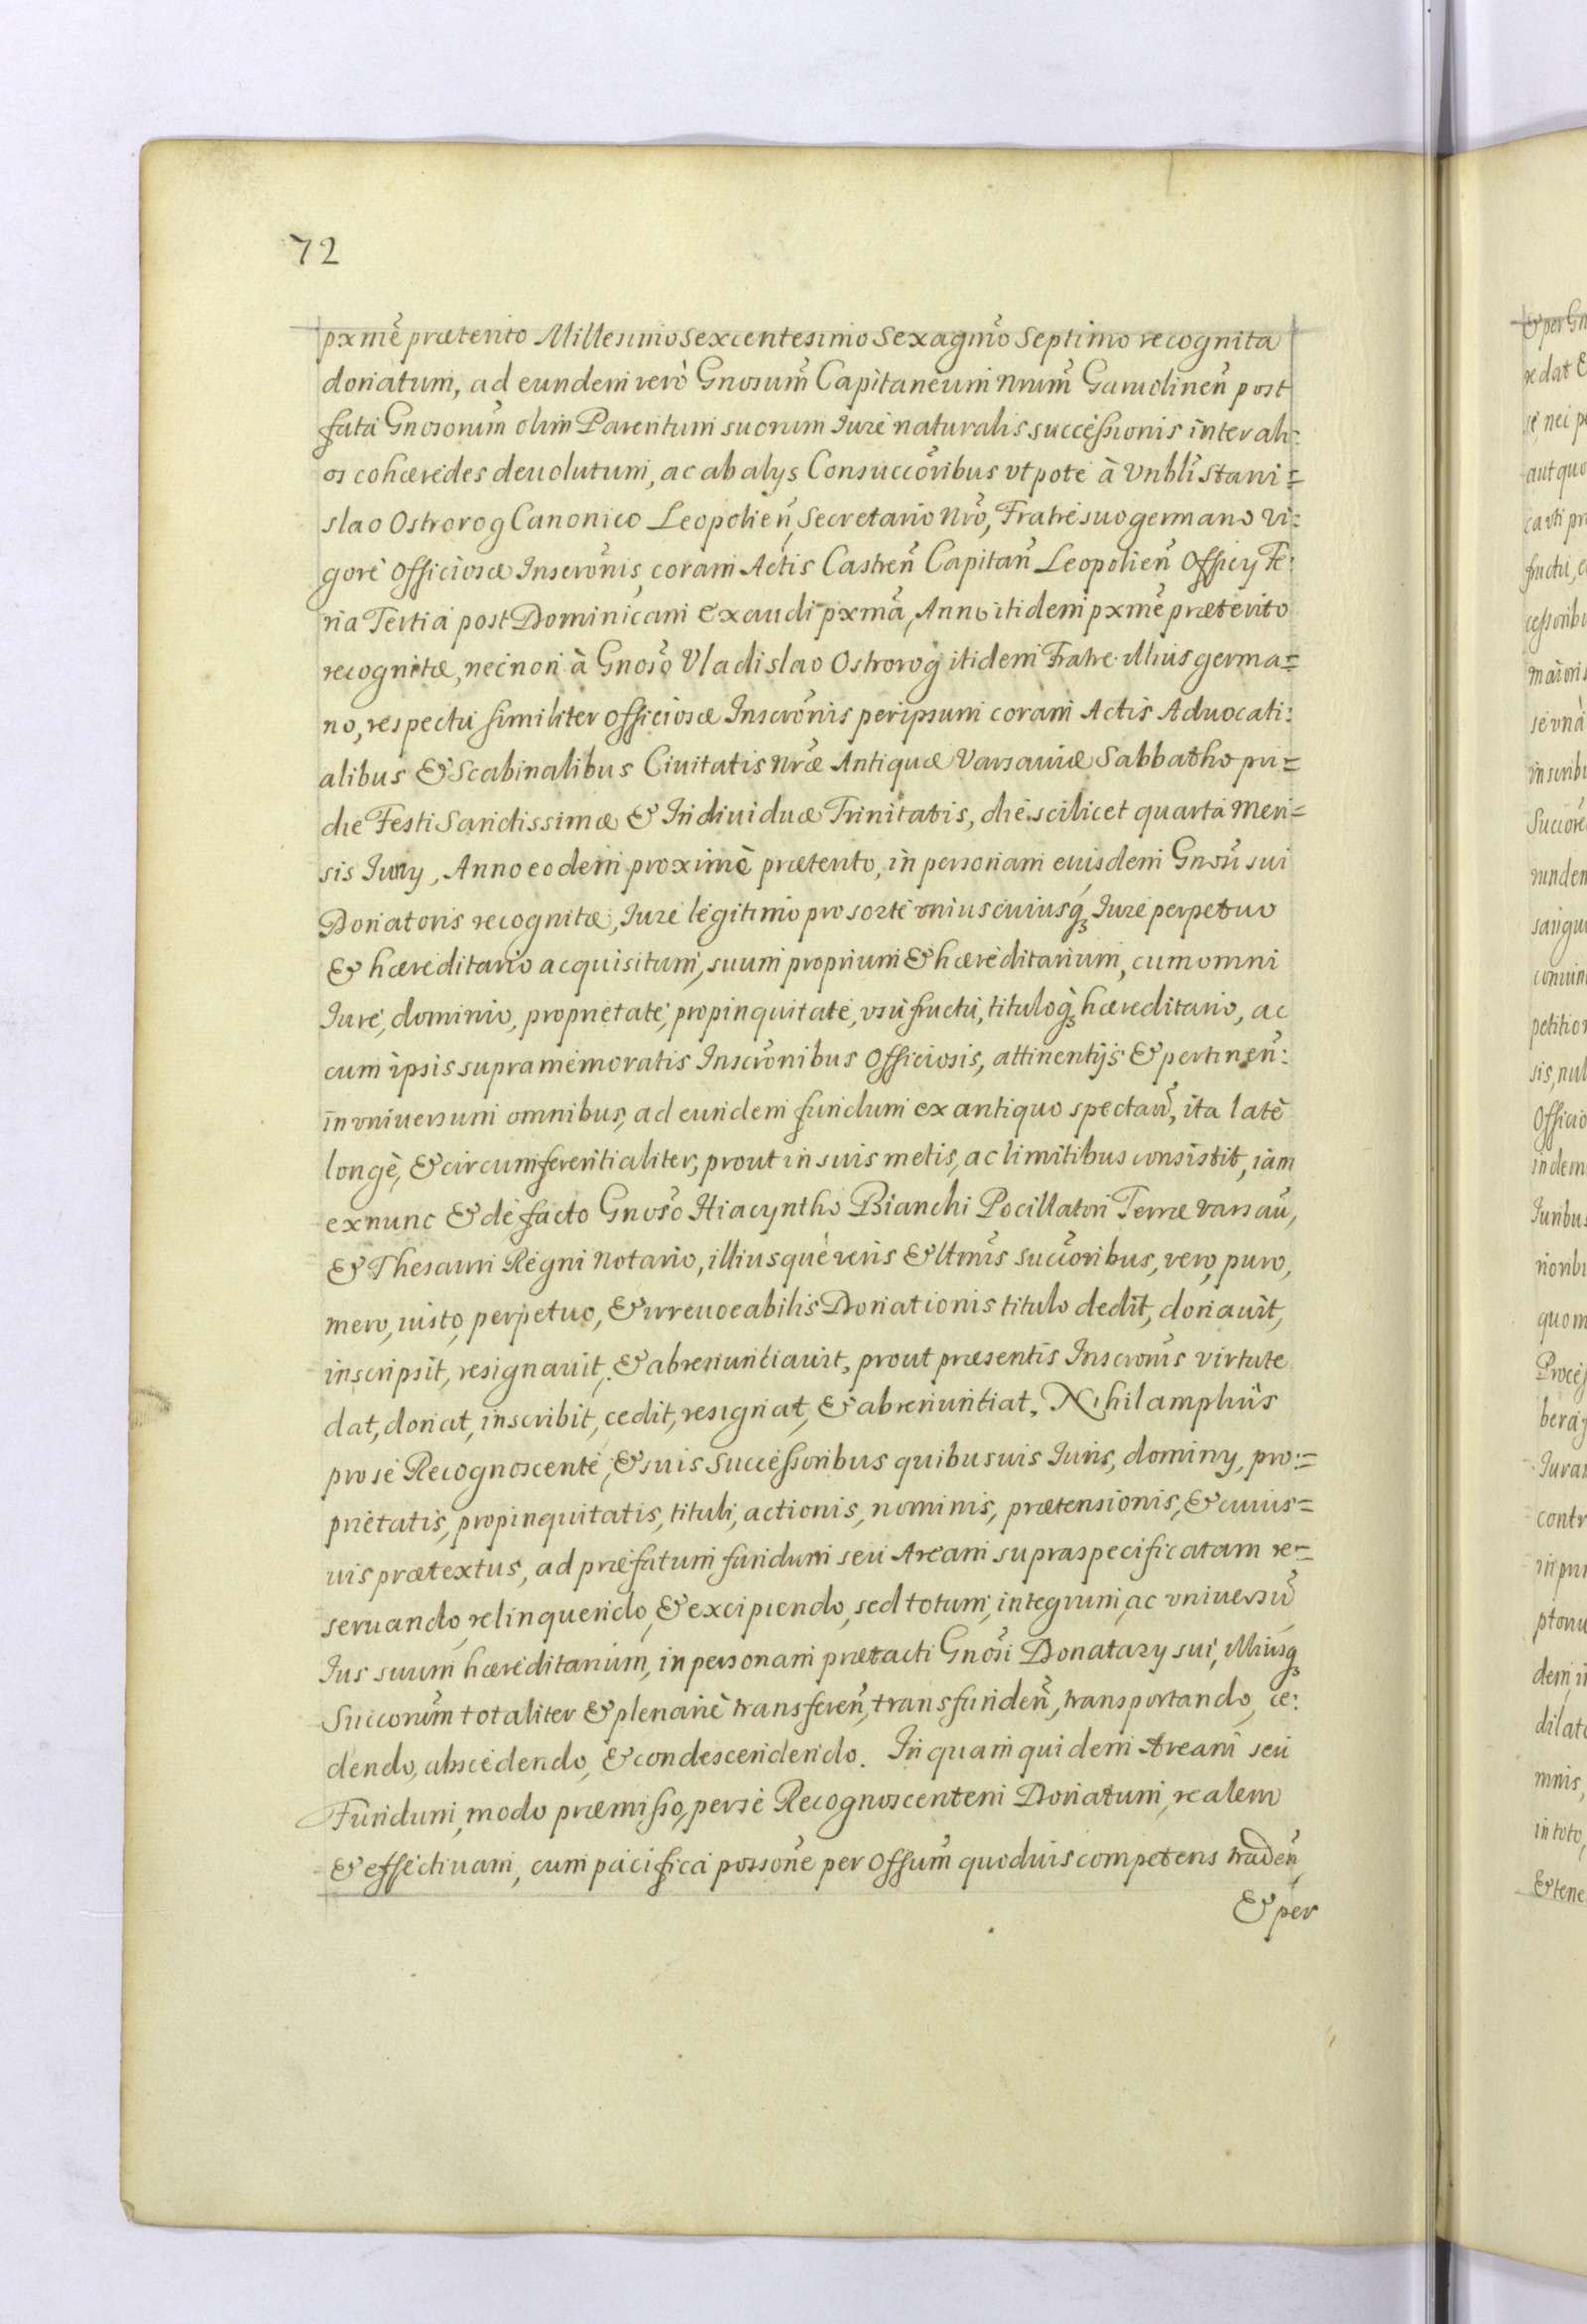 72
pxmẽ præterito Millesimo Sexcentesimo Sexagm̃o Septimo recognita
donatum, ad eundem verò Gnosum̃ Capitaneum Nrum̃ Garwolinen̄ post
fata Gnosorum̃ olim Parentum suorum Iure naturalis successionis inter ali=
os cohæredes devolutum, ac ab alys Consuccõribus vtpote à Vnbli Stani=
slao Ostrorog Canonico Leopolien̄, Secretario Nrõ, Fratre suo germano Vi=
gore Officiosæ Inscrõnis, coram Actis Castren̄ Capitan̄ Leopolien̄ Officy Fe=
ria Tertia post Dominicam Exaudi pxmã, Anno itidem pxmẽ præterito
recognitæ, necnon à Gnoso Vladislao Ostrorog itidem Fratre illius germa=
no, respectu similiter officiosæ Inscrõnis per ipsum coram Actis Advocati=
alibus & Scabinalibus Civitatis Nræ Antiquæ Varsaviæ Sabbatho pri=
die Festi Sanctissimæ & Individuæ Trinitatis, die scilicet quarta Men=
sis Iuny, Anno eodem proximè præterito, in personam eiusdem Gnosi sui
Donatoris recognitæ, Iure legitimo pro sorte vniuscuiusq; Iure perpetuo
& hæreditario acquisitum, suum proprium & hæreditarium, cum omni
Iure, dominio, proprietate, propinquitate, vsufructu, tituloq; hæreditario, ac
cum ipsis supramemoratis Inscrõnibus Officiosis, attinentijs & pertinen̄:
in vniversum omnibus, ad eundem fundum ex antiquo spectan̄, ita latè
longè, & circumferentialiter, prout in suis metis, ac limitibus consistit, iam
exnunc & de facto Gnoso Hiacyntho Bianchi Pocillatori Terræ Varsav̄,
& Thesauri Regni Notario, illiusque veris & ltmis succõribus, vero, puro,
mero, iusto, perpetuo, & irrevocabilis Donationis titulo dedit, donavit,
inscripsit, resignavit, & abrenuntiavit, prout præsentis Inscrõnis virtute
dat, donat, inscribit, cedit, resignat, & abrenuntiat, Nihil ampliùs
pro se Recognoscente, & suis Successoribus quibusuis Iuris, dominy, pro=
prietatis, propinquitatis, tituli, actionis, nominis, prætensionis, & cuius=
uis prætextus, ad præfatum fundum seu Aream supraspecificatam re=
servando, relinquendo, & excipiendo, sed totum, integrum, ac vniversũ
Ius suum hæreditarium, in personam prætacti Gnosi Donatary sui, illiusq;
Succorum̃ totaliter & plenariè transferen̄, transfunden̄, transportando, ce=
dendo, abscedendo, & condescendendo. In quam quidem Aream seu
Fundum, modo præmisso, per se Recognoscentem Donatum, realem
& effectivam, cum pacifica possone per Offum̃ quoduis competens traden̄
& per